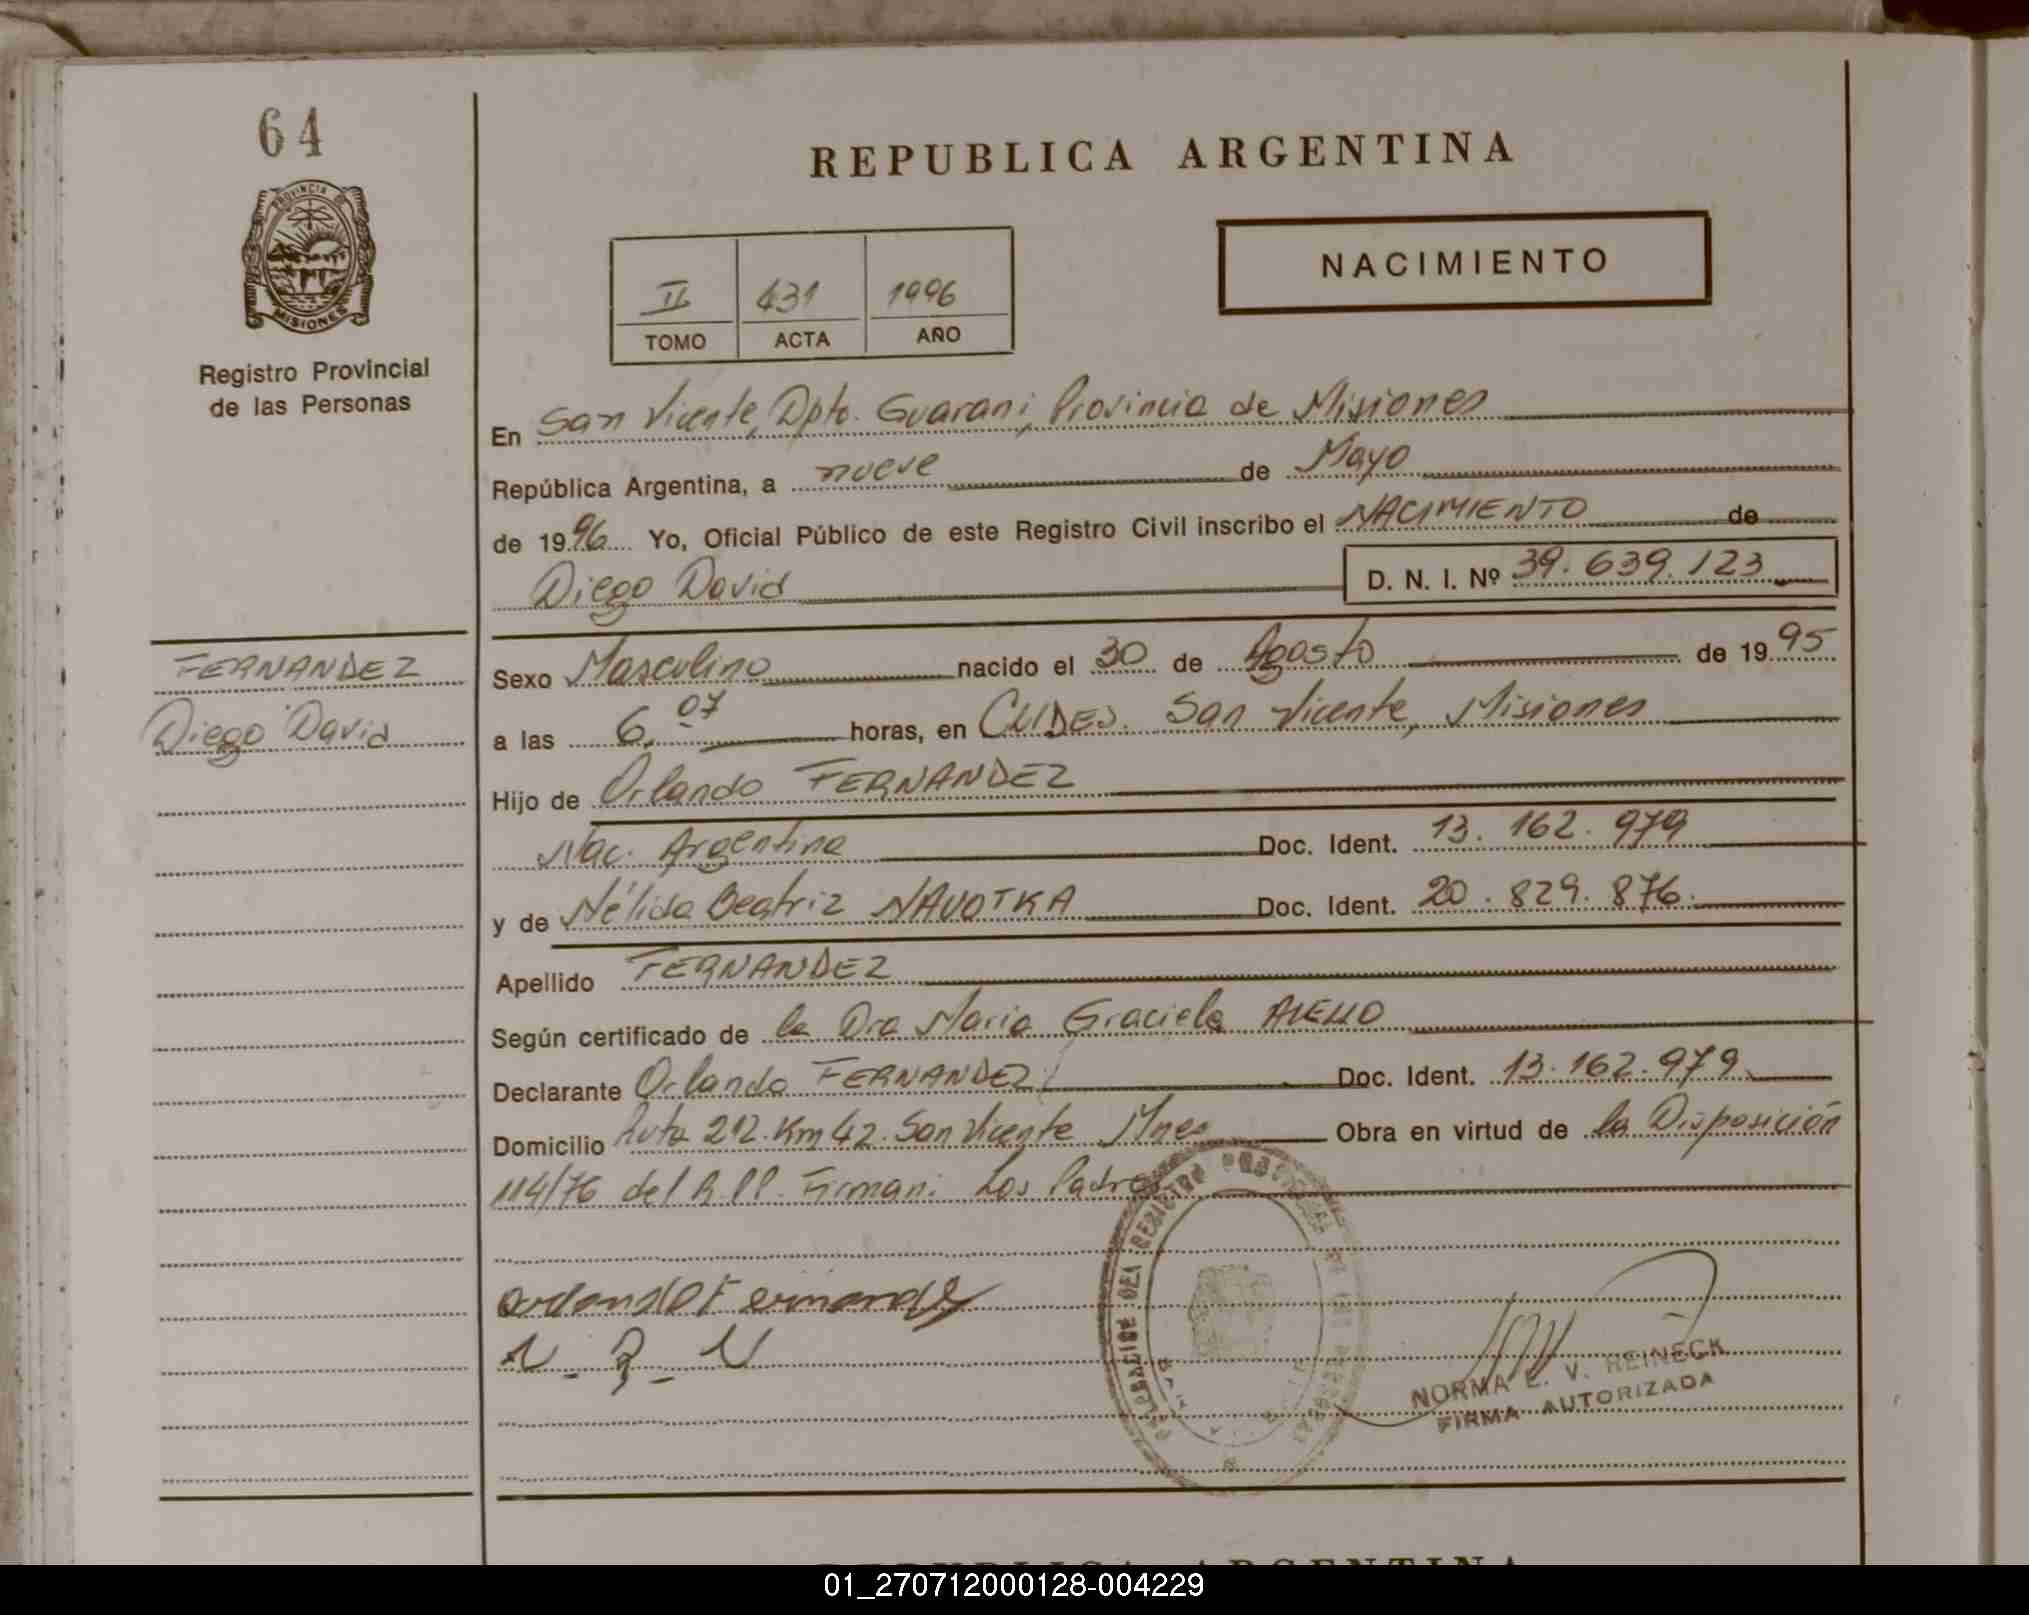 64
PROVINCIA DE
MISIONES
Registro Provincial
de las Personas
REPUBLICA ARGENTINA
NACIMIENTO
II 431 1996
TOMO ACTA AÑO
En San Vicente, Dpto. Guaraní, Provincia de Misiones
República Argentina, a nueve de Mayo
de 1996 Yo, Oficial Público de este Registro Civil inscribo el NACIMIENTO de
Diego David D. N. I. Nº 39.639.123
FERNANDEZ
Diego David
Sexo Masculino nacido el 30 de Agosto de 1995
a las 6.07 horas, en San Vicente, Misiones
Hijo de Orlando FERNANDEZ
Nac. Argentina Doc. Ident. 13.162.979
y de Nélida Beatriz Doc. Ident. 20.829.876
Apellido FERNANDEZ
Según certificado de la Dra Maria Graciela
Declarante Orlando FERNANDEZ Doc. Ident. 13.162.979
Domicilio Ruta 212. Km 42. San Vicente Mnes Obra en virtud de la Disposición
114/76 del R.P.P. Firman: Los Padres
Orlando Fernandez
NORMA E. V. REINECK
FIRMA AUTORIZADA
REPUBLICA ARGENTINA
01_270712000128-004229